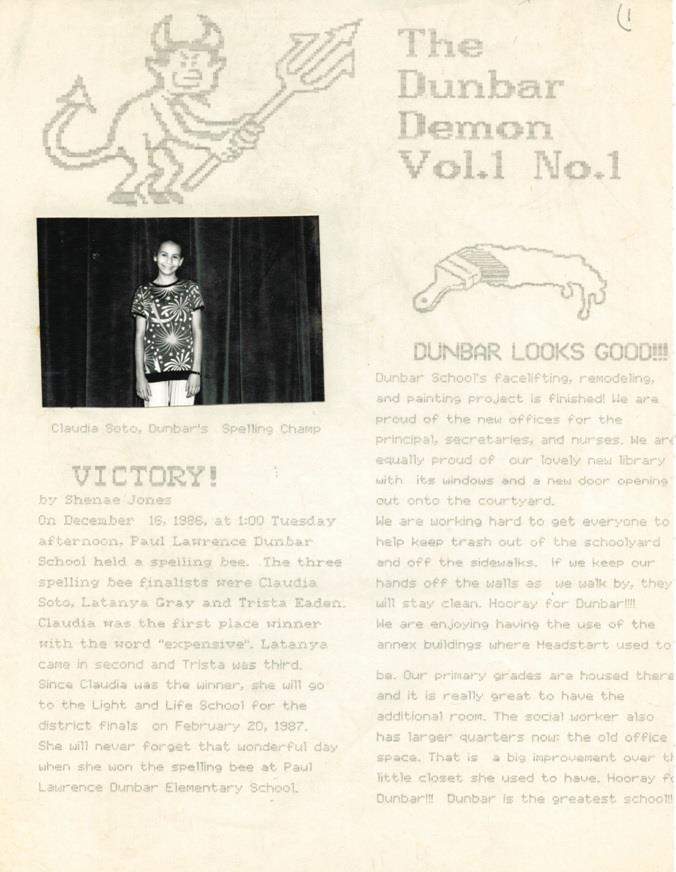 (1
The
Dunbar
Demon
Vol.1 No.1
Claudia Soto, Dunbar's Spelling Champ
VICTORY!
by Shenae Jones
On December 16, 1986, at 1:00 Tuesday
afternoon, Paul Lawrence Dunbar
School held a spelling bee. The three
spelling bee finalists were Claudia
Soto, Latanya Gray and Trista Eaden.
Claudia was the first place winner
with the word "expensive". Latanya
came in second and Trista was third.
Since Claudia was the winner, she will go
to the Light and Life School for the
district finals on February 20, 1987.
She will never forget that wonderful day
when she won the spelling bee at Paul
Lawrence Dunbar Elementary School.
DUNBAR LOOKS GOOD!!!
Dunbar School's facelifting, remodeling,
and painting project is finished! We are
proud of the new offices for the
principal, secretaries, and nurses. We are
equally proud of our lovely new library
with its windows and a new door opening
out onto the courtyard.
We are working hard to get everyone to
help keep trash out of the schoolyard
and off the sidewalks. If we keep our
hands off the walls as we walk by, they
will stay clean. Hooray for Dunbar!!!!
We are enjoying having the use of the
annex buildings where Headstart used to
be. Our primary grades are housed there
and it is really great to have the
additional room. The social worker also
has larger quarters now: the old office
space. That is a big improvement over th
little closet she used to have. Hooray fo
Dunbar!!! Dunbar is the greatest school!!